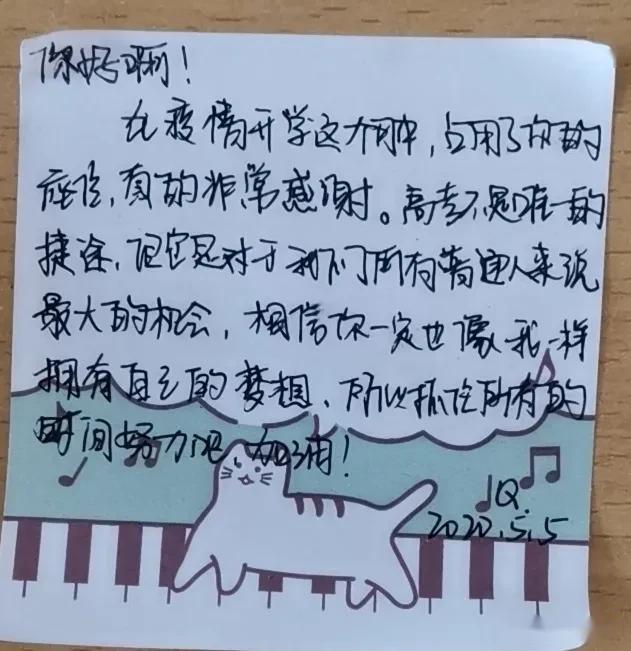 你好啊！
在疫情开学这个期中，占用了你的
座位，真的非常感谢。高考不是唯一的
捷途，但它是对于我们所有普通人来说
最大的机会，相信你一定也像我一样
拥有自己的梦想，所以抓住所有的
时间努力吧 加油！
Q.
2020.5.5